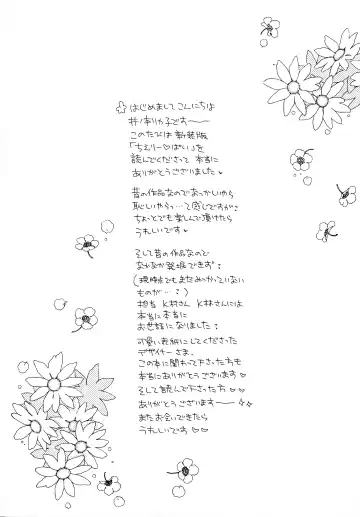 はじめまして こんにちは
井ノ本リカ子です〜〜
このたびは 新装版
「ちぇりー♡ぱい」を
読んでくださって 本当に
ありがとうございました♥
昔の作品なのでなつかしいやら
恥しいやらっ…て感じですが
ちょっとでも楽しんで頂けたら
うれしいです♥
そして昔の作品なので
なかなか発掘できず
(現時点でもまだみつかっていない
ものが…)
担当 K村さん K林さんには
本当に本当に
お世話になりました
可愛い表紙にしてくださった
デザイナーさま、
この本に関わって下さった方も
本当にありがとうございます♡
そして読んで下さった方♡♡
ありがとうございます〜〜
またお会いできたら
うれしいです♡♡